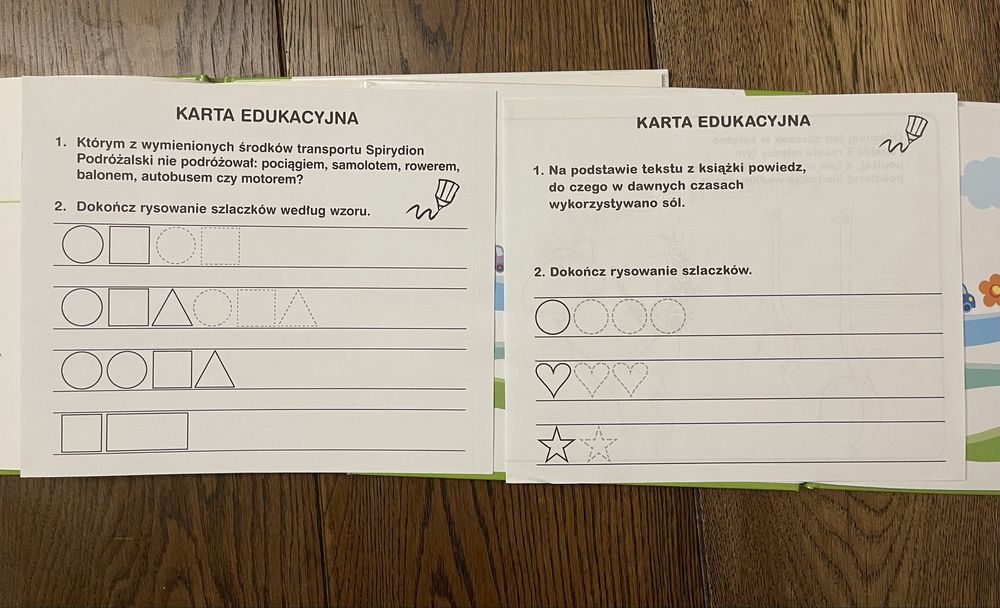 KARTA EDUKACYJNA
1. Którym z wymienionych środków transportu Spirydion
Podróżalski nie podróżował: pociągiem, samolotem, rowerem,
balonem, autobusem czy motorem?
2. Dokończ rysowanie szlaczków według wzoru.
KARTA EDUKACYJNA
1. Na podstawie tekstu z książki powiedz,
do czego w dawnych czasach
wykorzystywano sól.
2. Dokończ rysowanie szlaczków.